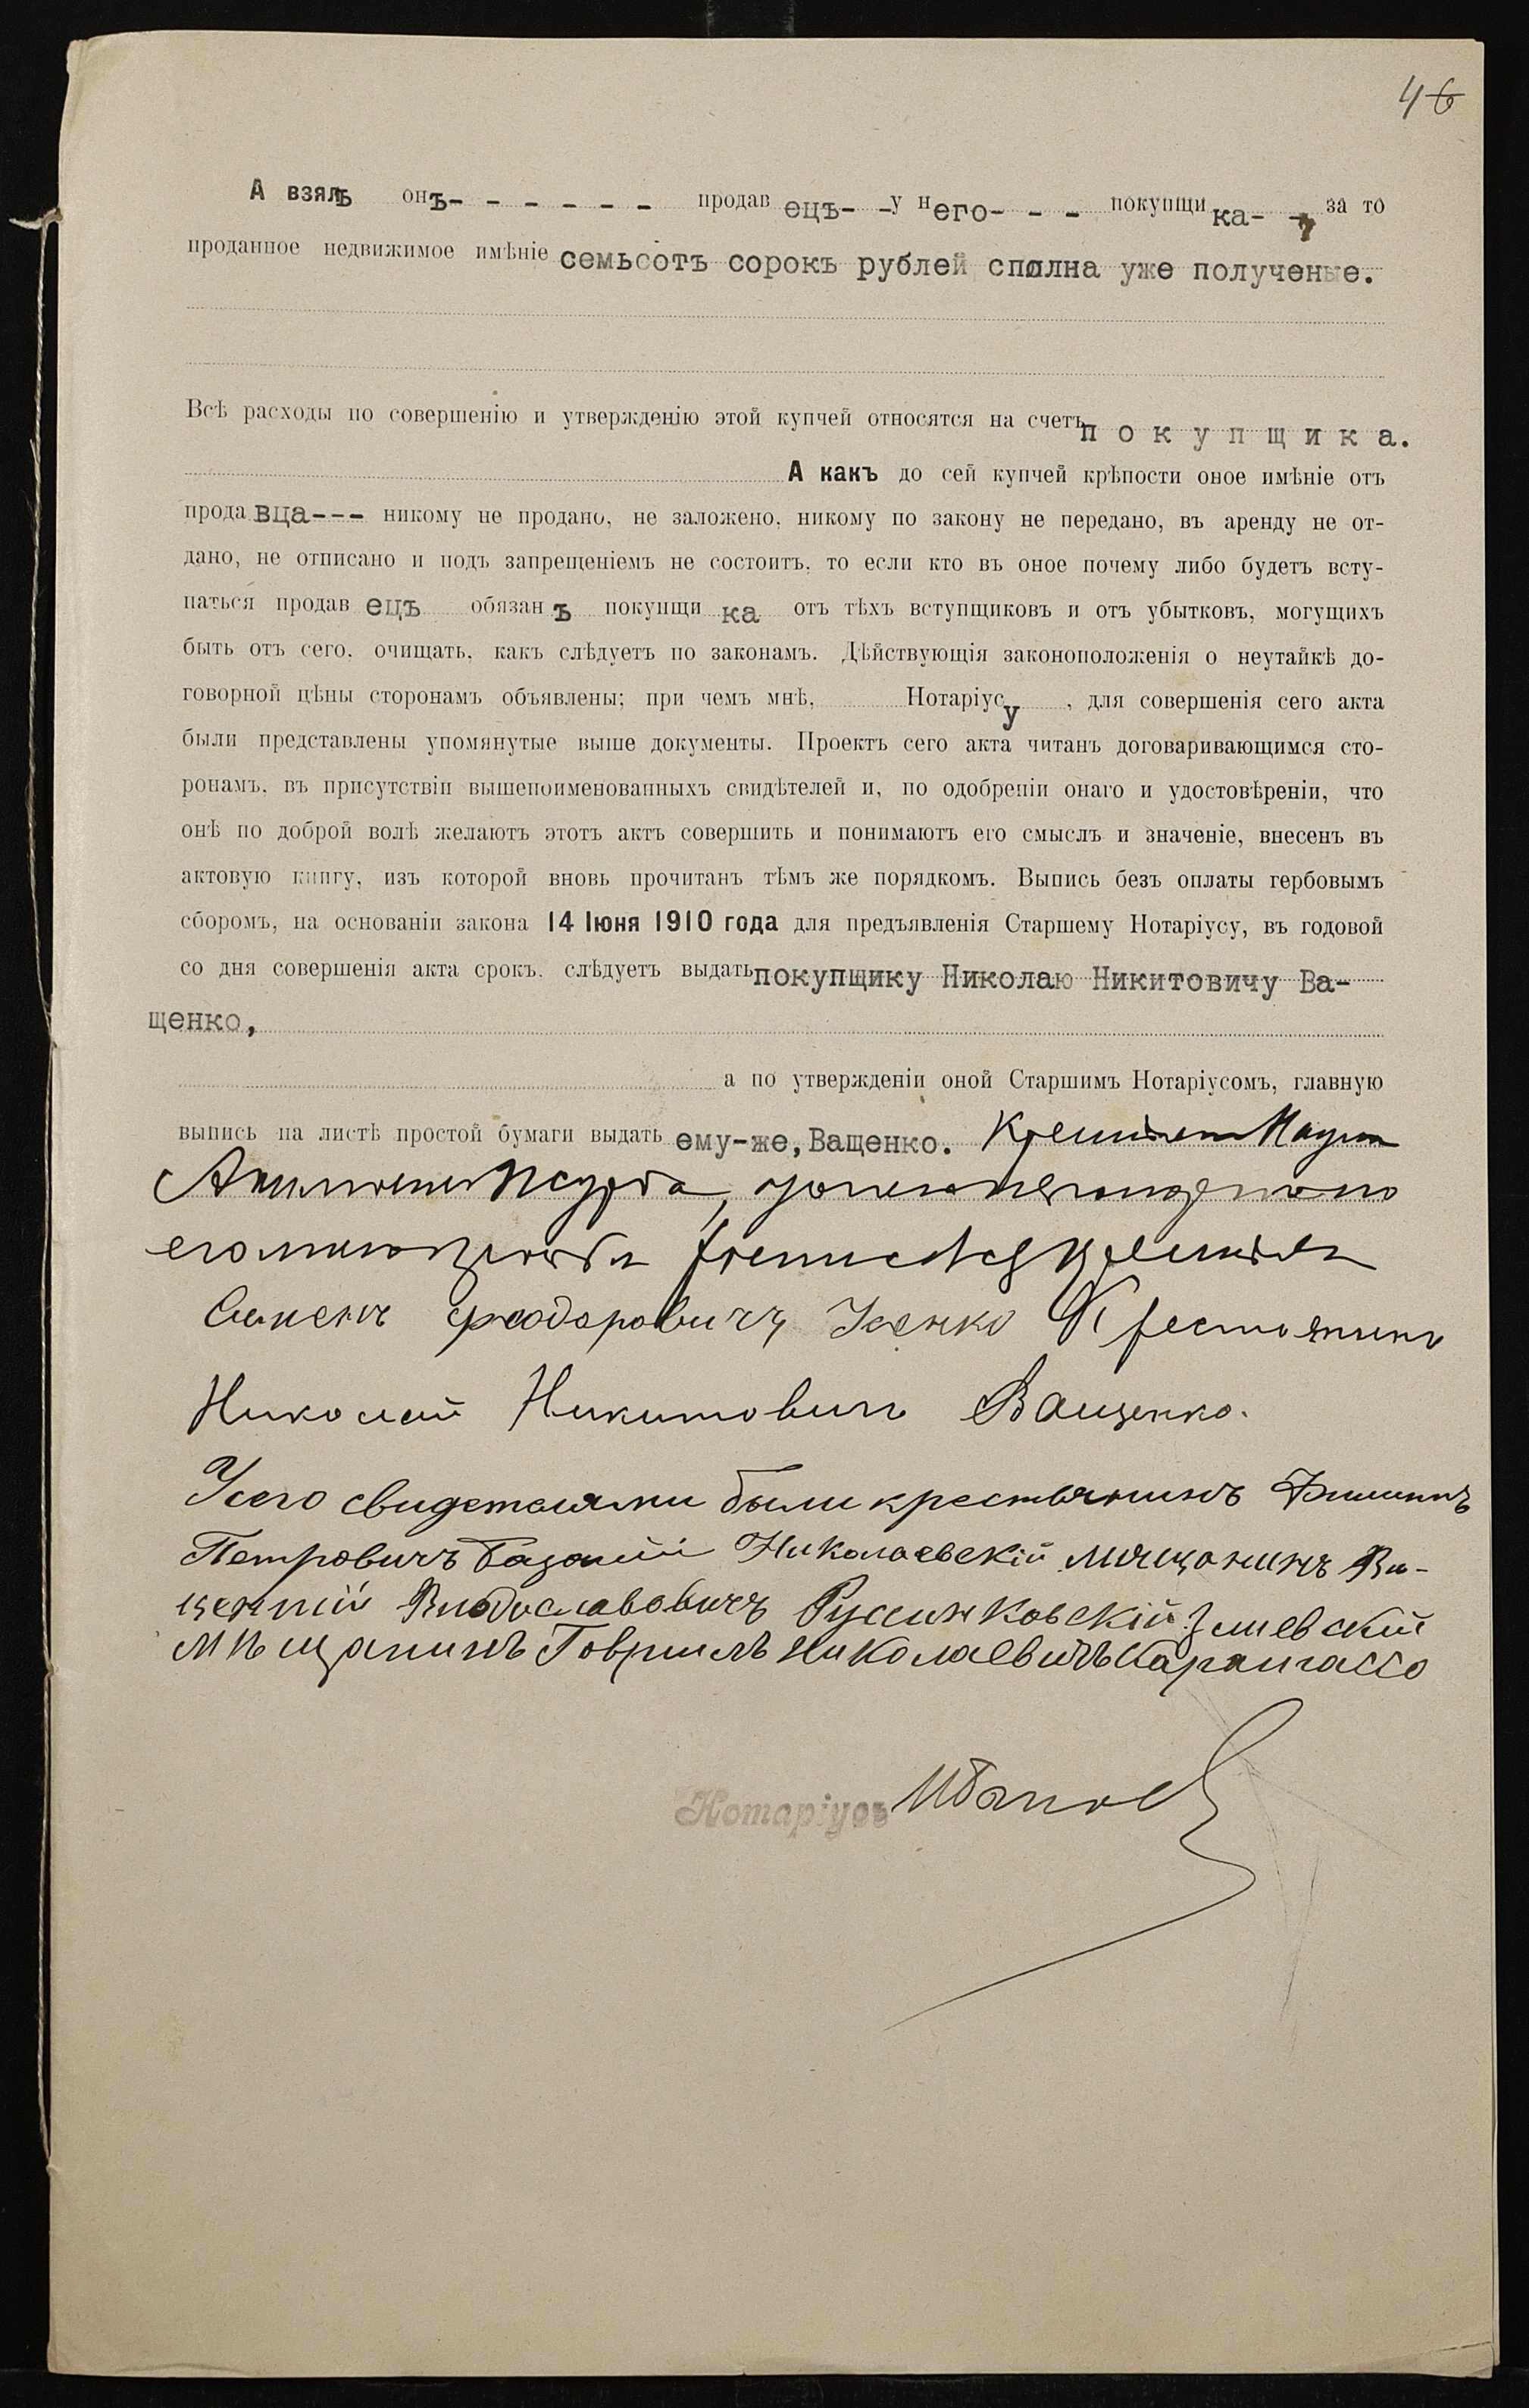 46
А взялъ онъ- - - - - - продавецъ- -у него- - - покупщика- -, за то
проданное недвижимое имѣніе семьсотъ сорокъ рублей сполна уже полученые.
Всѣ расходы по совершенію и утвержденію этой купчей относятся на счетъ покупщика.
А какъ до сей купчей крѣпости оное имѣніе отъ
продавца--- никому не продано, не заложено, никому по закону не передано, въ аренду не от-
дано, не отписано и подъ запрещеніемъ не состоитъ, то если кто въ оное почему либо будетъ всту-
паться продавецъ обязанъ покупщика отъ тѣхъ вступщиковъ и отъ убытковъ, могущихъ
быть отъ сего, очищать, какъ слѣдуетъ по законамъ. Дѣйствующія законоположенія о неутайкѣ до-
говорной цѣны сторонамъ объявлены; при чемъ мнѣ, Нотаріусу, для совершенія сего акта
были представлены упомянутые выше документы. Проектъ сего акта читанъ договаривающимся сто-
ронамъ, въ присутствіи вышепоименованныхъ свидѣтелей и, по одобреніи онаго и удостовѣреніи, что
онѣ по доброй волѣ желаютъ этотъ актъ совершить и понимаютъ его смыслъ и значеніе, внесенъ въ
актовую книгу, изъ которой вновь прочитанъ тѣмъ же порядкомъ. Выпись безъ оплаты гербовымъ
сборомъ, на основаніи закона 14 Іюня 1910 года для предъявленія Старшему Нотаріусу, въ годовой
со дня совершенія акта срокъ, слѣдуетъ выдать покупщику Николаю Никитовичу Ва-
щенко,
а по утвержденіи оной Старшимъ Нотаріусомъ, главную
выпись на листѣ простой бумаги выдать ему-же, Ващенко.
его личной просьбѣ
Феодоровичъ Крестьянинъ
Николай Никитовичъ Ващенко.
Усего свидетелями были крестьянинъ Филиппъ
Петровичъ Базалій Николаевскій мещанинъ Ви-
кентій Владиславовичъ Змиевской
Мѣщанинъ Гавриилъ Николаевичъ
Нотаріусъ